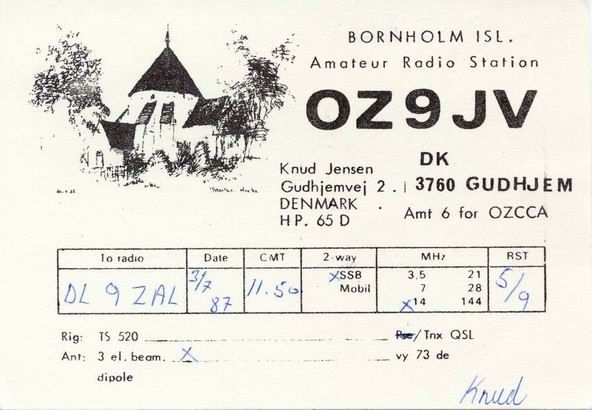 BORNHOLM ISL.
Amateur Radio Station
OZ9JV
DK
Knud Jensen
Gudhjemvej 2. 3760 GUDHJEM
DENMARK
HP. 65 D Amt 6 for OZCCA
To radio Date CMT 2-way MHz RST
DL 9 ZAL 3/7 87 11.50 X SSB Mobil 3.5 21 7 28 X 14 144 5/9
Rig: TS 520 Pse/Tnx QSL
Ant: 3 el. beam. X vy 73 de
dipole
Knud